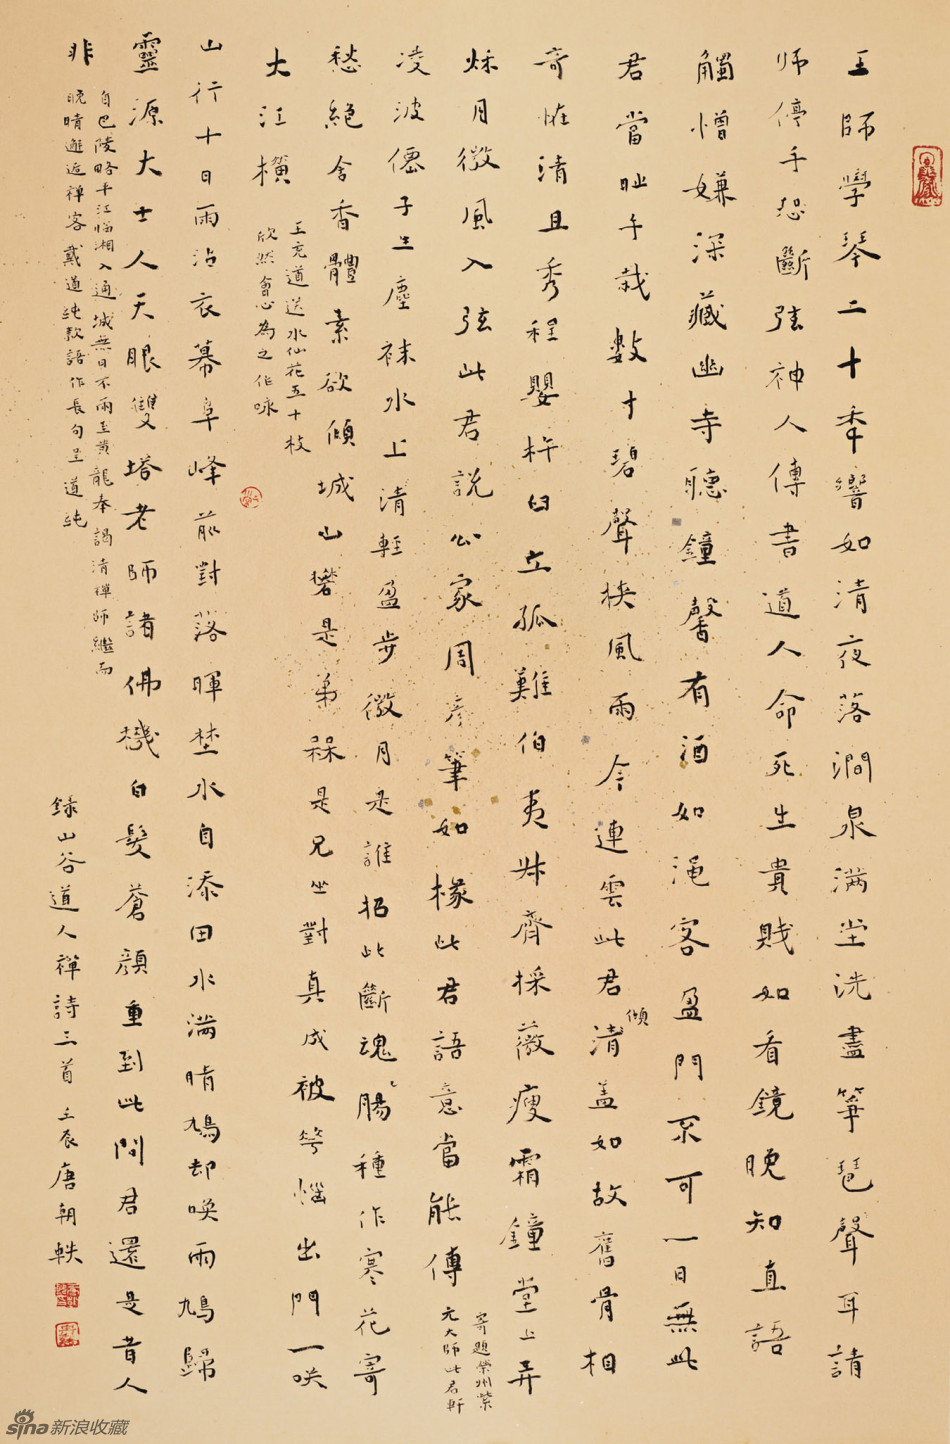 王師學琴二十秊響如清夜落澗泉满坐洗盡箏琶聲耳請
师停手恐斷弦神人傳書道人命死生貴賤如看鏡晚知直語
觸憎嫌深藏幽寺聽鐘馨有酒如渑客盈門不可一日無此
君當时手栽數寸碧聲挾風雨今連雲此君清蓋如故舊骨相
傾
奇怪清且秀程嬰杵臼立孤難伯夷叔齊採薇瘦霜鐘堂上弄
秌月微風入弦此君說公家周彥筆如椽此君語意當能傳
寄題榮州紫
元大师此君軒
凌波僊子生塵袜水上清輕盈步微月是誰招此斷魂腸種作寒花寄
愁絕含香體素欲傾城山礬是弟槑是兄坐對真成被花惱出門一咲
大江橫
王充道送水仙花五十枝
欣然會心為之作咏
山行十日雨沾衣幕阜峰前對落暉埜水自添田水满晴鳩却唤雨鳩歸
靈源大士人天眼雙塔老师諸佛機白髮蒼顏重到此問君還是昔人
非
自巴陵略平江临湘入通城無日不雨至黄龍奉謁清禪师繼而
晚晴邂逅禪客戴道純款語作長句呈道純
録山谷道人禪詩三首 壬辰唐朝軼
sina新浪收藏